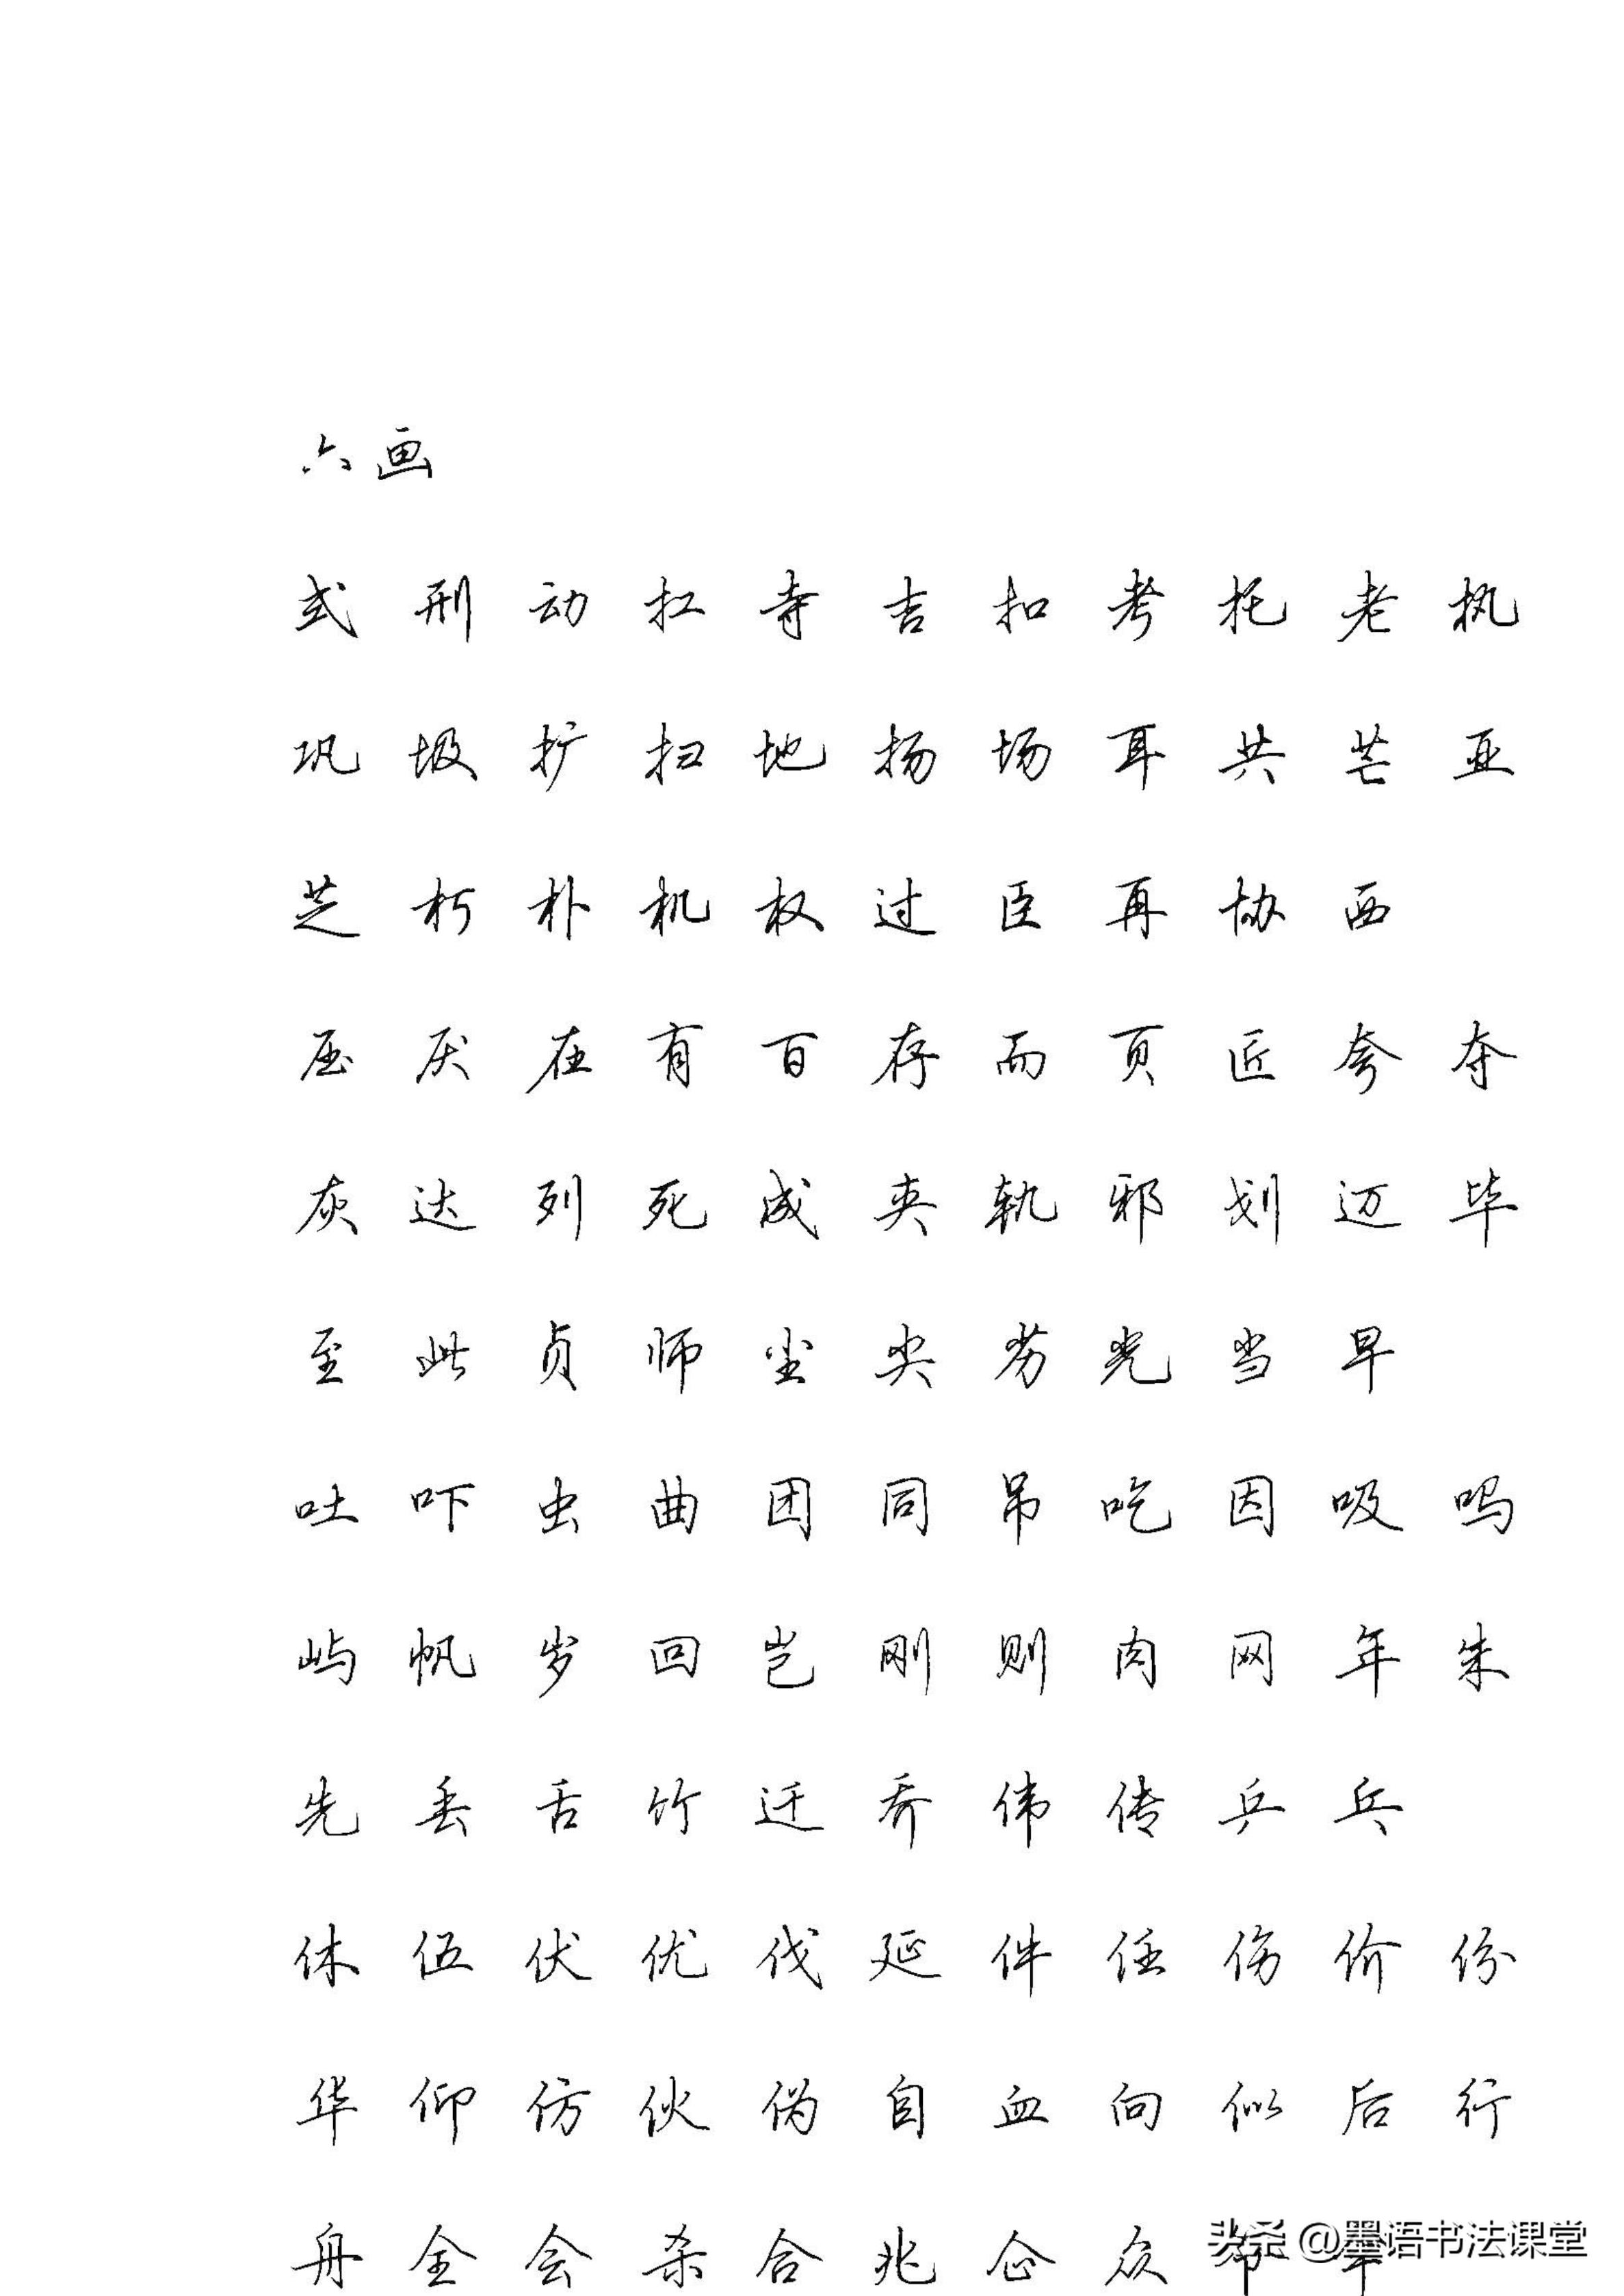 六画
式 刑 动 扛 寺 吉 扣 考 托 老 执
巩 圾 扩 扫 地 扬 场 耳 共 芒 亚
芝 朽 朴 机 权 过 臣 再 协 西
压 厌 在 有 百 存 而 页 匠 夸 夺
灰 达 列 死 成 夹 轨 邪 划 迈 毕
至 此 贞 师 尘 尖 劣 光 当 早
吐 吓 虫 曲 团 同 吊 吃 因 吸 吗
屿 帆 岁 回 岂 刚 则 肉 网 年 朱
先 丢 舌 竹 迁 乔 伟 传 乒 乓
休 伍 伏 优 伐 延 件 任 伤 价 份
华 仰 仿 伙 伪 自 血 向 似 后 行
舟 全 会 杀 合 兆 企 众
头条 @墨语书法课堂